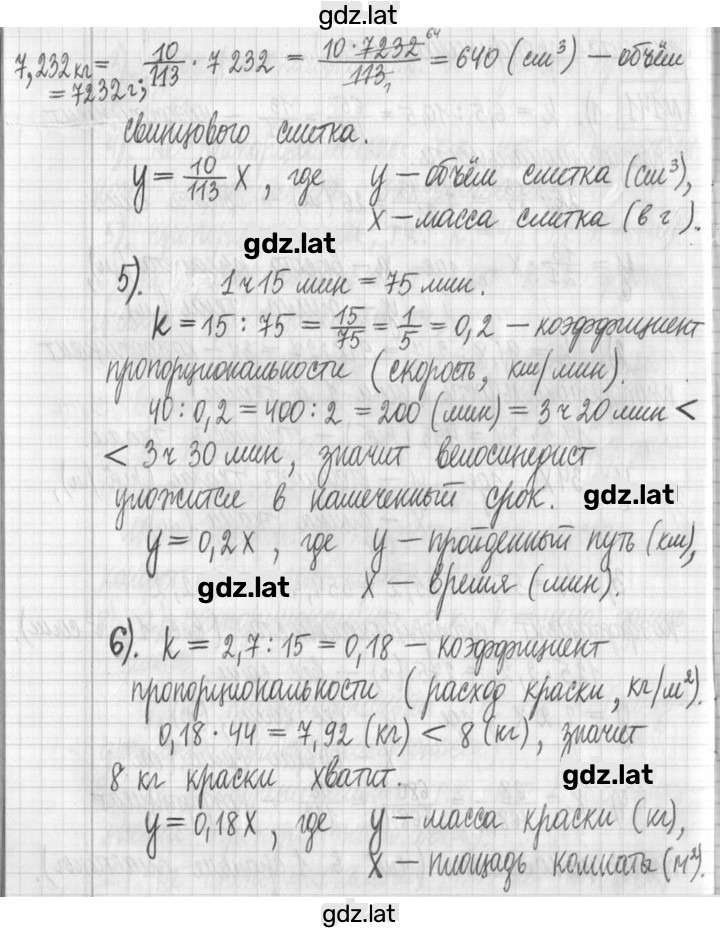 gdz.lat
7,232 кг = 10/113 · 7 232 = 10·7232/113 = 640 (см³) – объём
64
1
= 7232 г;
свинцового слитка.
y = 10/113 x, где y – объём слитка (см³),
x – масса слитка (в г).
gdz.lat
5). 1 ч 15 мин = 75 мин.
k = 15 : 75 = 15/75 = 1/5 = 0,2 – коэффициент
пропорциональности (скорость, км/мин).
40 : 0,2 = 400 : 2 = 200 (мин) = 3 ч 20 мин <
< 3 ч 30 мин, значит велосипедист
уложится в намеченный срок. gdz.lat
y = 0,2x, где y – пройденный путь (км),
gdz.lat x – время (мин).
6). k = 2,7 : 15 = 0,18 – коэффициент
пропорциональности (расход краски, кг/м²).
0,18 · 44 = 7,92 (кг) < 8 (кг), значит
8 кг краски хватит. gdz.lat
y = 0,18x, где y – масса краски (кг),
x – площадь комнаты (м²).
gdz.lat